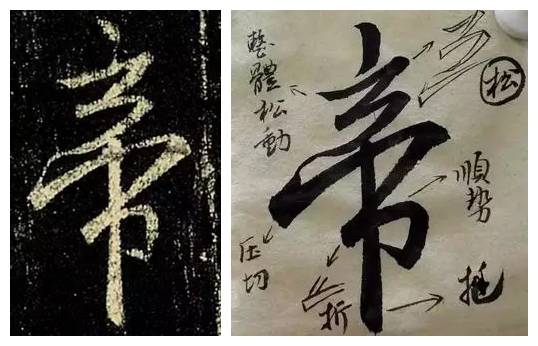 帝
帝
整體松動
松
順势
压切
折
挺